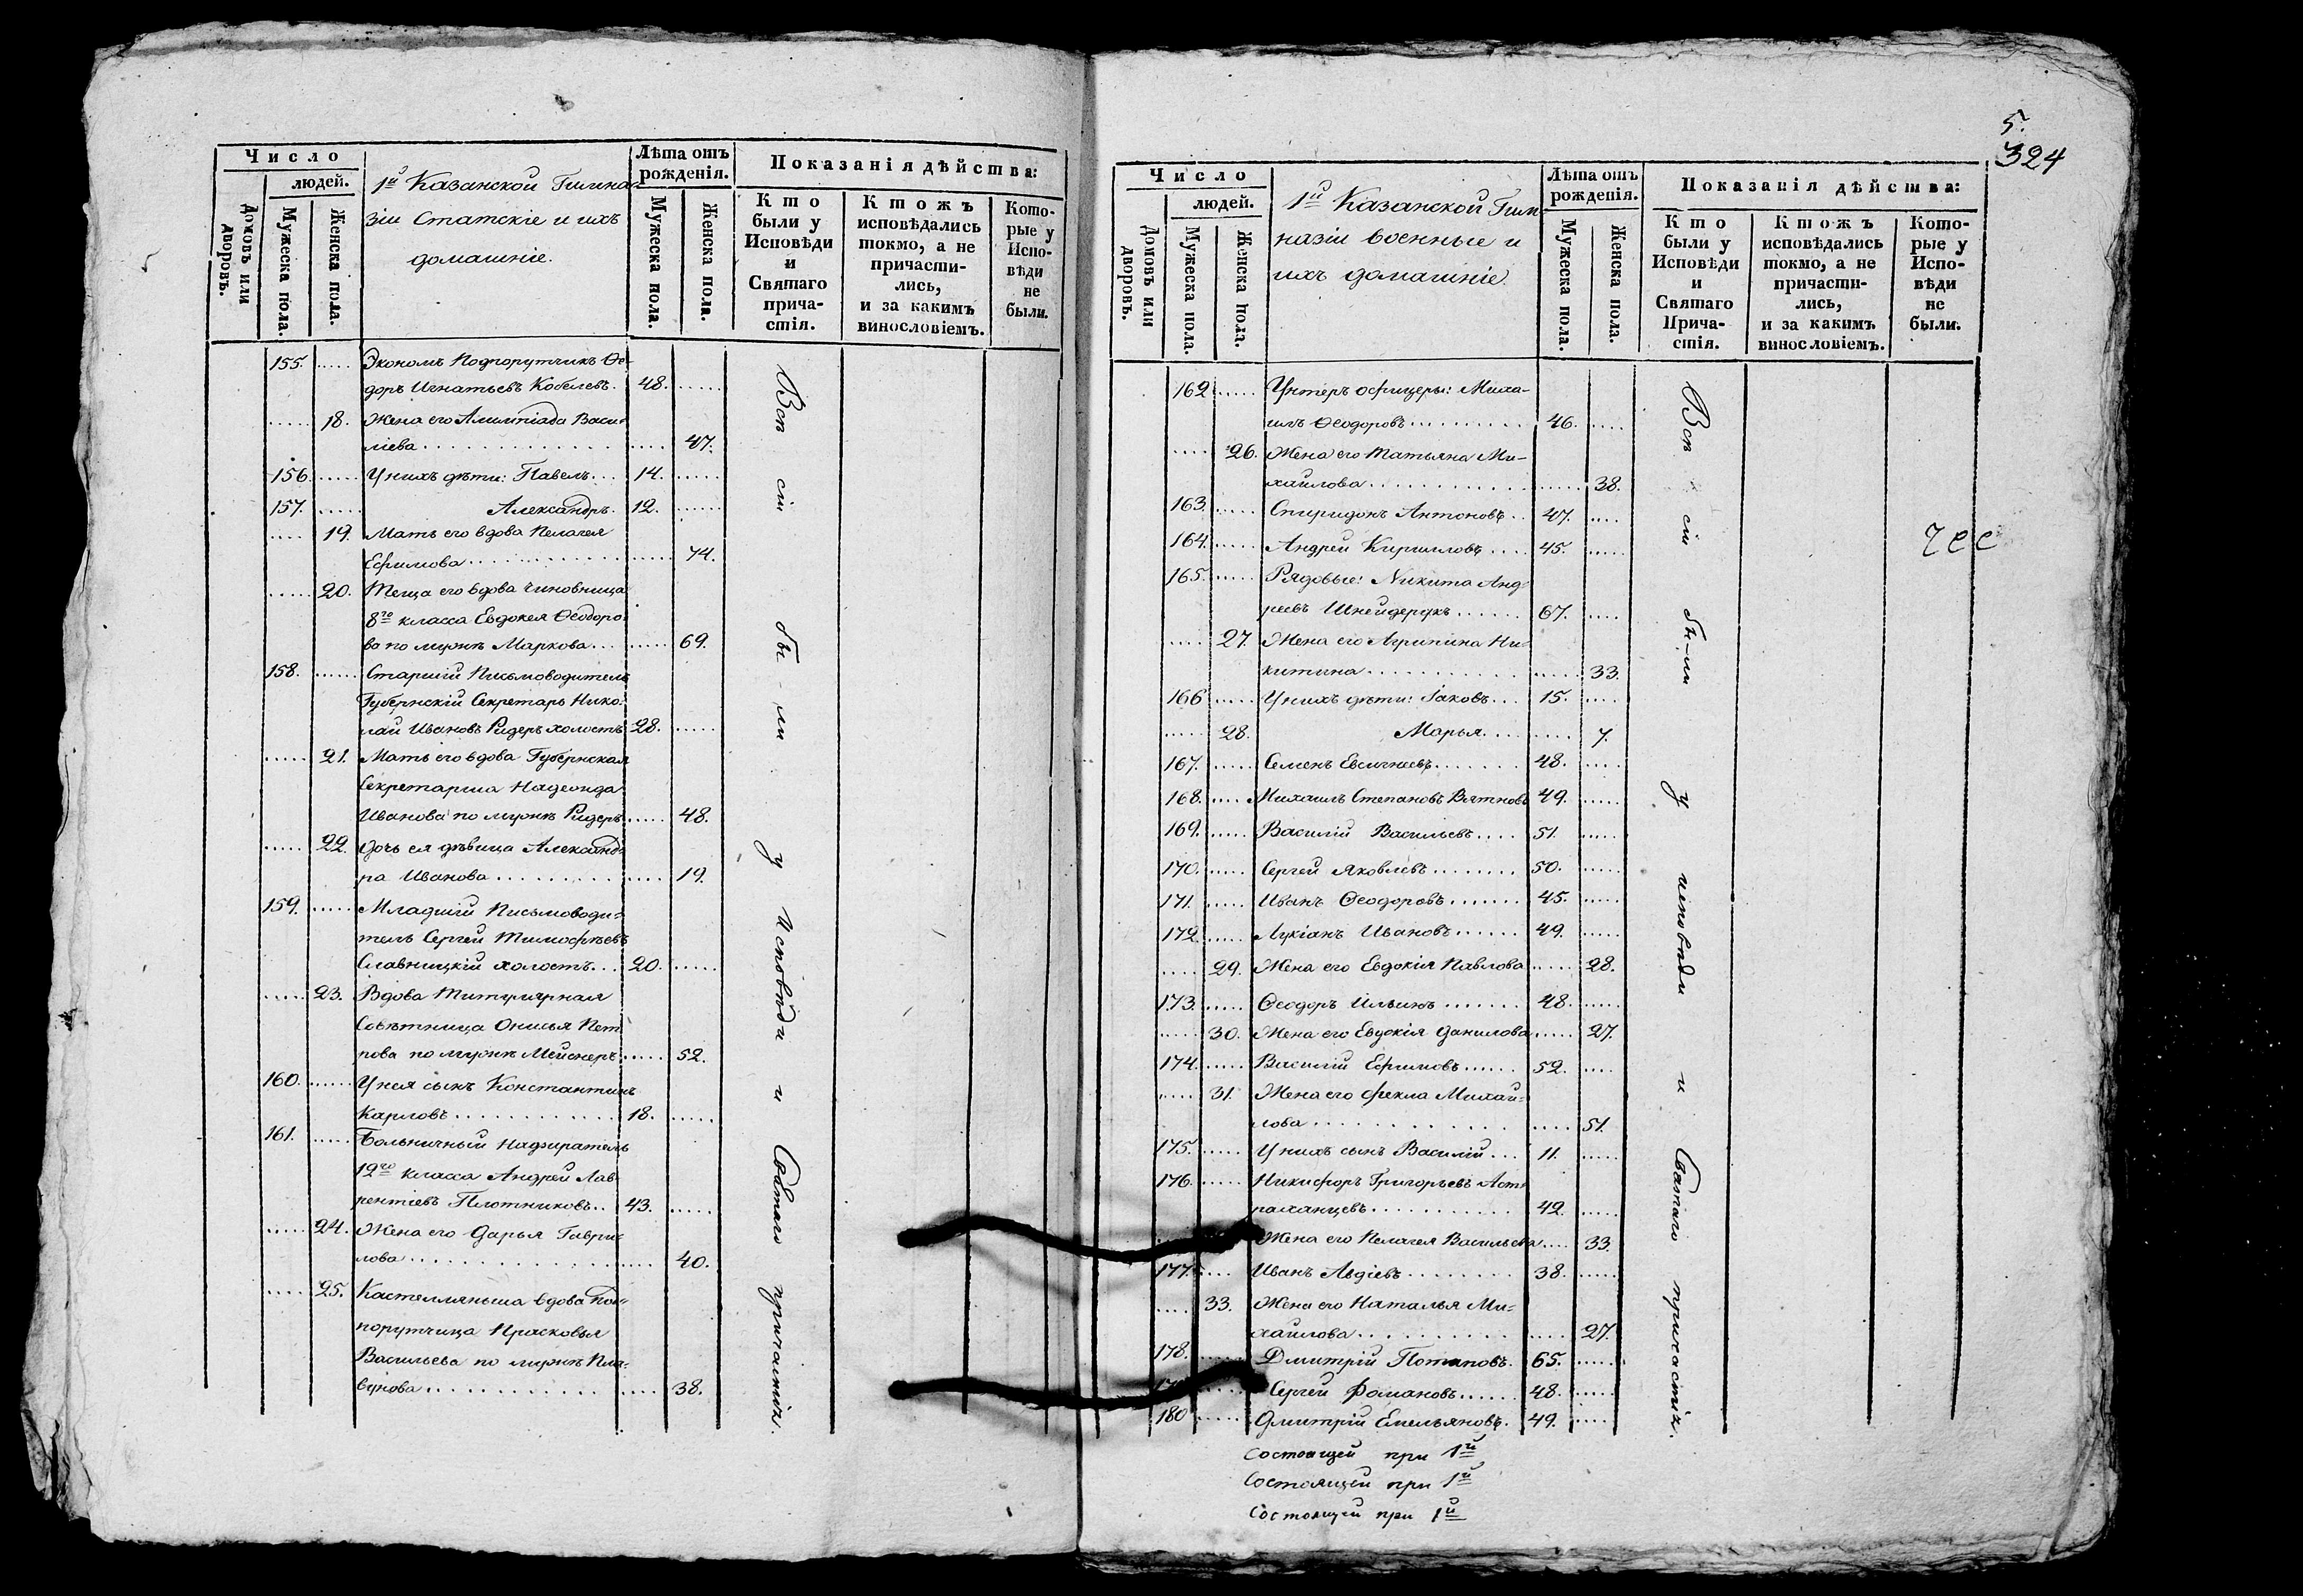 Число
людей.
Домовъ или дворовъ.
Мужеска пола.
Женска пола.
1й Казанской Гимна-
зіи Статскіе и ихъ
домашніе.
Лѣта отъ
рожденія.
Мужеска пола.
Женска пола.
Показанія дѣйства:
Кто
были у
Исповѣди
и
Святаго
прича-
стія.
Ктожъ
исповѣдались
токмо, а не
причасти-
лись,
и за какимъ
винословіемъ.
Кото-
рые у
Испо-
вѣди
не
были.
155. ..... Экономъ Подпорутчикъ Ѳе-
доръ Игнатьевъ Кобелевъ. 48. .....
..... 18. Жена его Алимпіада Васи-
ліева ..... 47.
156. ..... У нихъ дѣти: Павелъ... 14. .....
157. ..... Александръ. 12. .....
..... 19. Мать его вдова Пелагея
Ефимова ..... 74.
..... 20. Теща его вдова чиновница
8го класса Евдокея Ѳеодоро-
ва по мужѣ Маркова... ..... 69.
158. ..... Старшій Письмоводитель
Губернскій Секретарь Нико-
лай Ивановъ Ридеръ холостъ 28. .....
..... 21. Мать его вдова Губернская
Секретарша Надежда
Иванова по мужѣ Ридеръ ..... 48.
..... 22. Дочь ея дѣвица Александ-
ра Иванова ..... 19.
159. ..... Младшій Письмоводи-
тель Сергей Тимофѣевъ
Славницкій холостъ... 20. .....
..... 23. Вдова Титулярная
Совѣтница Онисья Пет-
рова по мужѣ Мейснеръ ..... 52.
160. ..... У нея сынъ Константинъ
Карловъ ..... 18. .....
161. ..... Больничный Надзиратель
12го класса Андрей Лав-
рентіевъ Плотниковъ.. 43. .....
..... 24. Жена его Дарья Гаври-
лова ..... 40.
..... 25. Кастелянша вдова Под-
порутчица Прасковья
Васильева по мужѣ
38.
Всѣ сіи бы-ли у Исповѣди и Святаго причастія.
5.
324
Число
людей.
Домовъ или дворовъ.
Мужеска пола.
Женска пола.
1й Казанской Гим-
назіи военные и
ихъ домашніе.
Лѣта отъ
рожденія.
Мужеска пола.
Женска пола.
Показанія дѣйства:
Кто
были у
Исповѣди
и
Святаго
Прича-
стія.
Ктожъ
исповѣдались
токмо, а не
причасти-
лись,
и за какимъ
винословіемъ.
Кото-
рые у
Испо-
вѣди
не
были.
162 ..... Унтеръ офицеры: Миха-
илъ Ѳеодоровъ ..... 46. .....
..... 26. Жена его Татьяна Ми-
хайлова ..... 38.
163. ..... Спиридонъ Антоновъ.. 47. ....
164. ..... Андрей Кирилловъ .... 45. .....
165. ..... Рядовые: Никита Анд-
реевъ Шнейдерукъ ..... 67. ....
..... 27. Жена его Агрипина Ни-
китина ..... 33.
166 ..... У нихъ дѣти: Іаковъ... 15. ....
..... 28. Марья ..... 7.
167. ..... Семенъ Евсигнеевъ ..... 48. ....
168. ..... Михаилъ Степановъ 49. .....
169. ..... Василій Васильевъ .... 51. .....
170. ..... Сергей Яковлевъ ..... 50. .....
171. ..... Иванъ Ѳеодоровъ ..... 45. .....
172. ..... Лукіанъ Ивановъ ..... 49. .....
..... 29. Жена его Евдокія Павлова ..... 28.
173. ..... Ѳеодоръ Ильинъ ..... 48. .....
..... 30. Жена его Евдокія Данилова ..... 27.
174. ..... Василій Ефимовъ ..... 52. ....
..... 31. Жена его Фекла Михай-
лова ..... 51.
175. ..... У нихъ сынъ Василій ... 11. .....
176. ..... Никифоръ Григорьевъ Аст-
раханцевъ ..... 42. .....
Жена его Пелагея Васильева .... 33.
177. ..... Иванъ Авдіевъ ..... 38. .....
..... 33. Жена его Наталья Ми-
хайлова ..... 27.
178. ..... Дмитрій Потаповъ. 65. .....
Сергей Романовъ ..... 48. .....
180 ..... Дмитрій Емельяновъ. 49. .....
Всѣ сіи бы-ли у исповѣди и Святаго причастія.
Состоящей при 1й
Состоящей при 1й
Состоящей при 1й